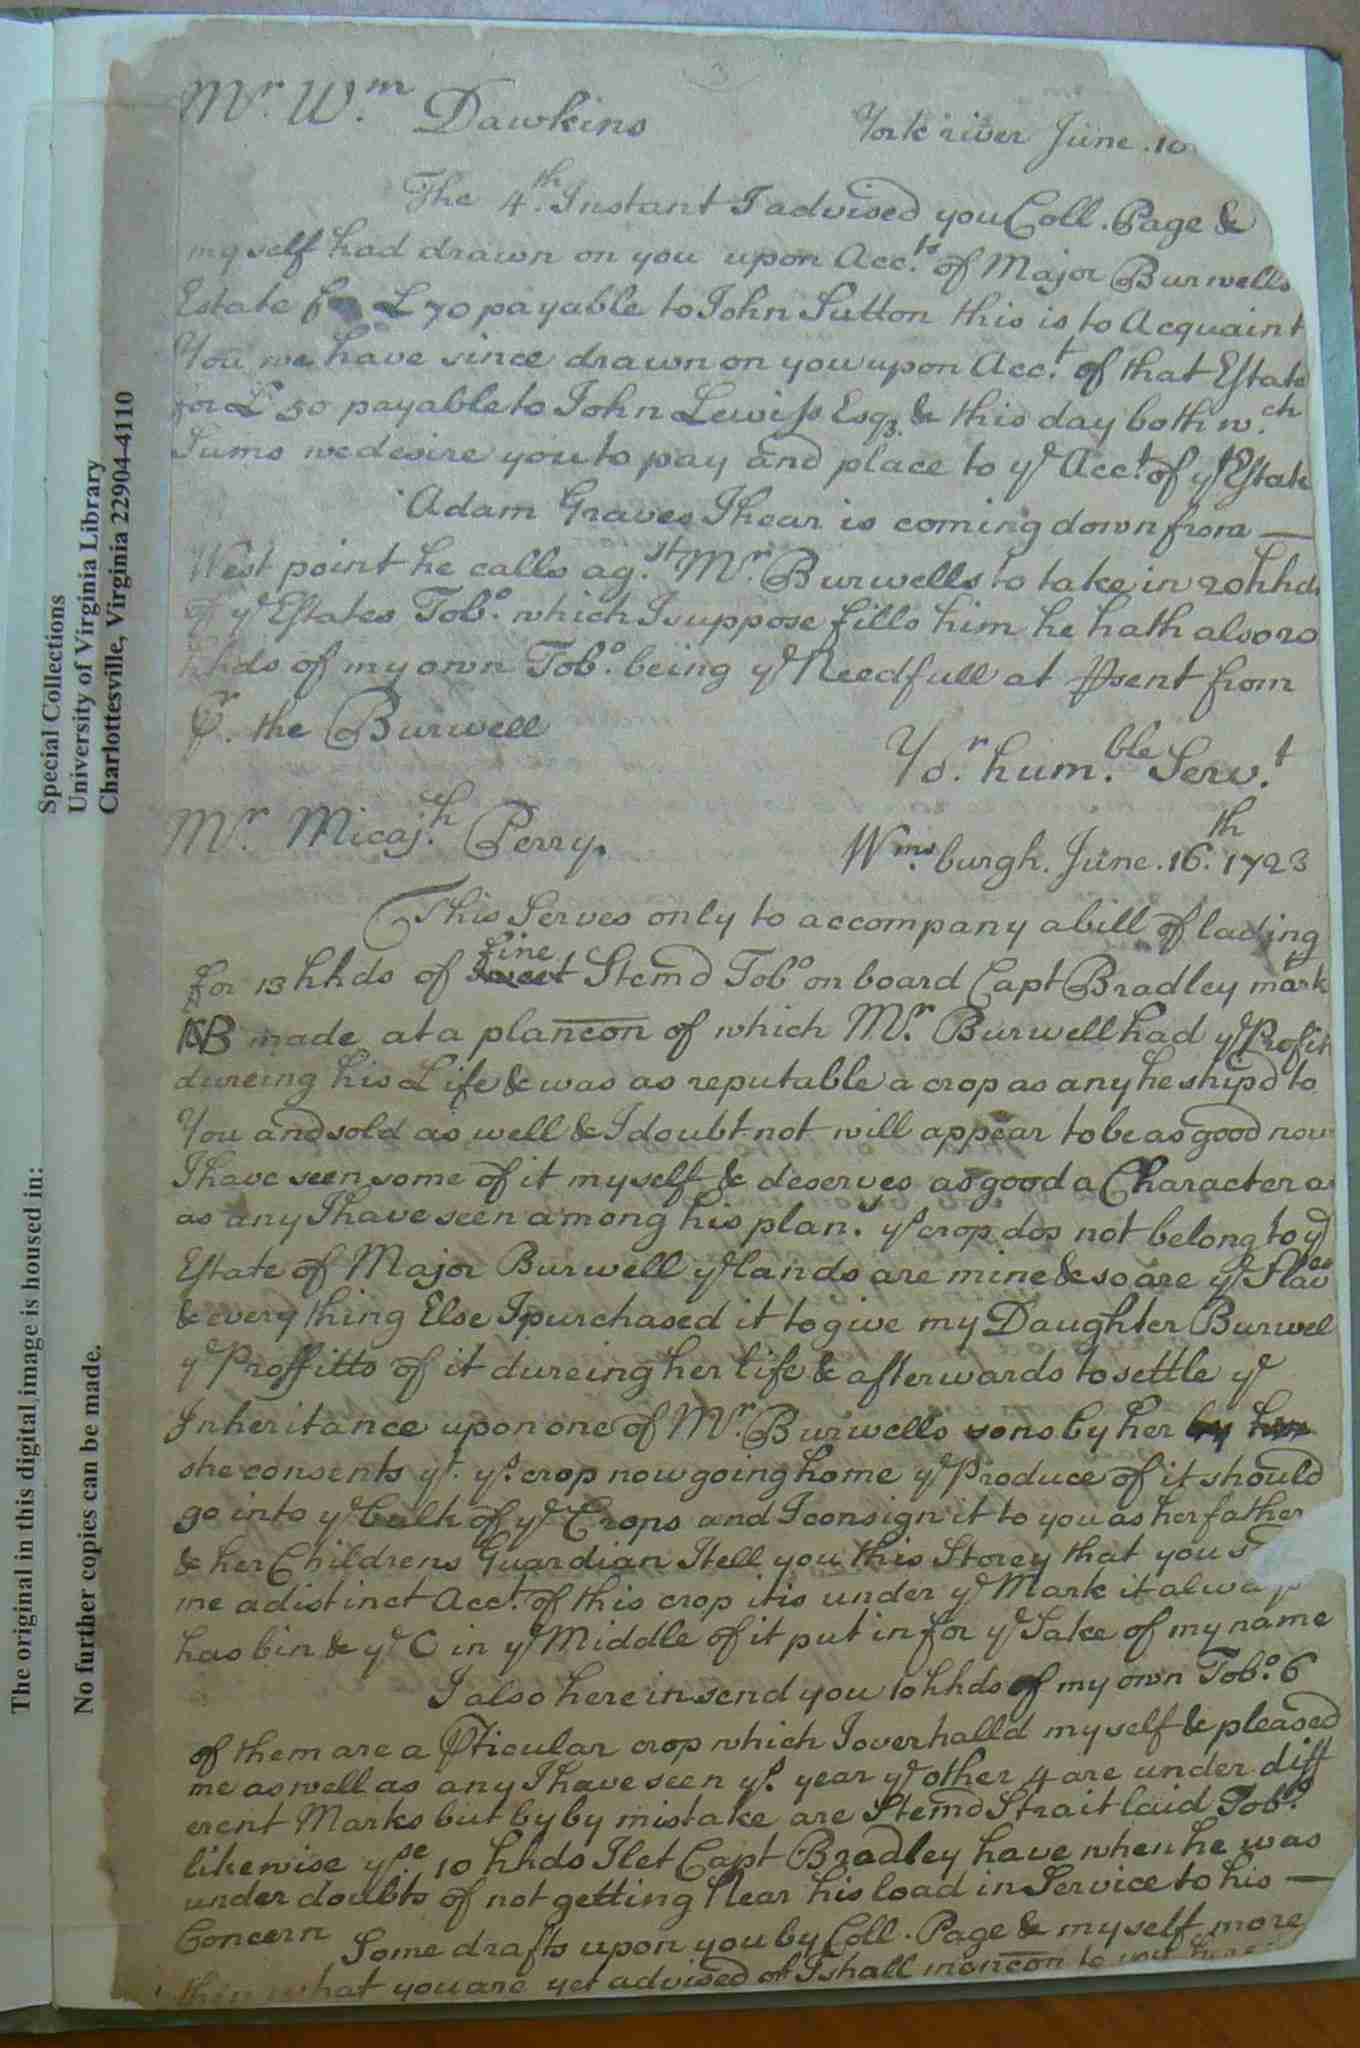 Mr. Wm. Dawkins
York river June. 10
The 4th. Instant I advised you Coll. Page &
my self had drawn on you upon Acc.ts of Major Burwells
Estate £ 70 payable to John Sutton this is to Acquaint
You we have since drawn on you upon Acc.t of that Estate
for £ 50 payable to John Lewiss Esq. & this day both w.ch
Sums we desire you to pay and place to ye Acc.t of yt Estate
Adam Graves I hear is coming down from —
West point he calls ag.st Mr. Burwells to take in 20 hhds
of ye Estates Tob.o which I suppose fills him he hath also 20
hhds of my own Tob.o being ye Needfull at Psent from
Pr. the Burwell
Yo.r hum.ble Serv.t
Mr. Micaj.h Perry.
Wms.burgh. June. 16.th 1723
This Serves only to accompany a bill of lading
fine
for 13 hhds of sweet Stemd Tobo on board Capt Bradley mark
made at a plancon of which Mr. Burwell had ye Profit
dureing his Life & was as reputable a crop as any he shipd to
You and sold as well & I doubt not will appear to be as good now
I have seen some of it my self & deserves as good a Character a
as any I have seen among his plan.s ys crop dos not belong to ye
Estate of Major Burwell ye lands are mine & so are ye Slaves
& every thing Else I purchased it to give my Daughter Burwel
ye Proffitts of it dureing her life & afterwards to settle ye
Inheritance upon one of Mr. Burwells sons by her by her
she consents yt. ys. crop now going home ye Produce of it should
go into ye Bulk of ye Crops and I consign it to you as her father
& her Childrens Guardian I tell you this Storey that you s
me a distinct Acc.t of this crop it is under ye Mark it always
has bin & ye C in ye Middle of it put in for ye Sake of my name
I also herein send you 10 hhds of my own Tob.o 6
of them are a Pticular crop which I overhalld my self & pleased
me as well as any I have seen ys. year ye other 4 are under diff
erent Marks but by by mistake are Stemd Strait laid Tob.o
likewise yse. 10 hhds I let Capt Bradley have when he was
under doubts of not getting Near his load in Service to his —
Concern Some drafts upon you by Coll. Page & my self more
then what you are yet advised of I shall mencon to you
Special Collections
University of Virginia Library
Charlottesville, Virginia 22904-4110
The original in this digital image is housed in:
No further copies can be made.